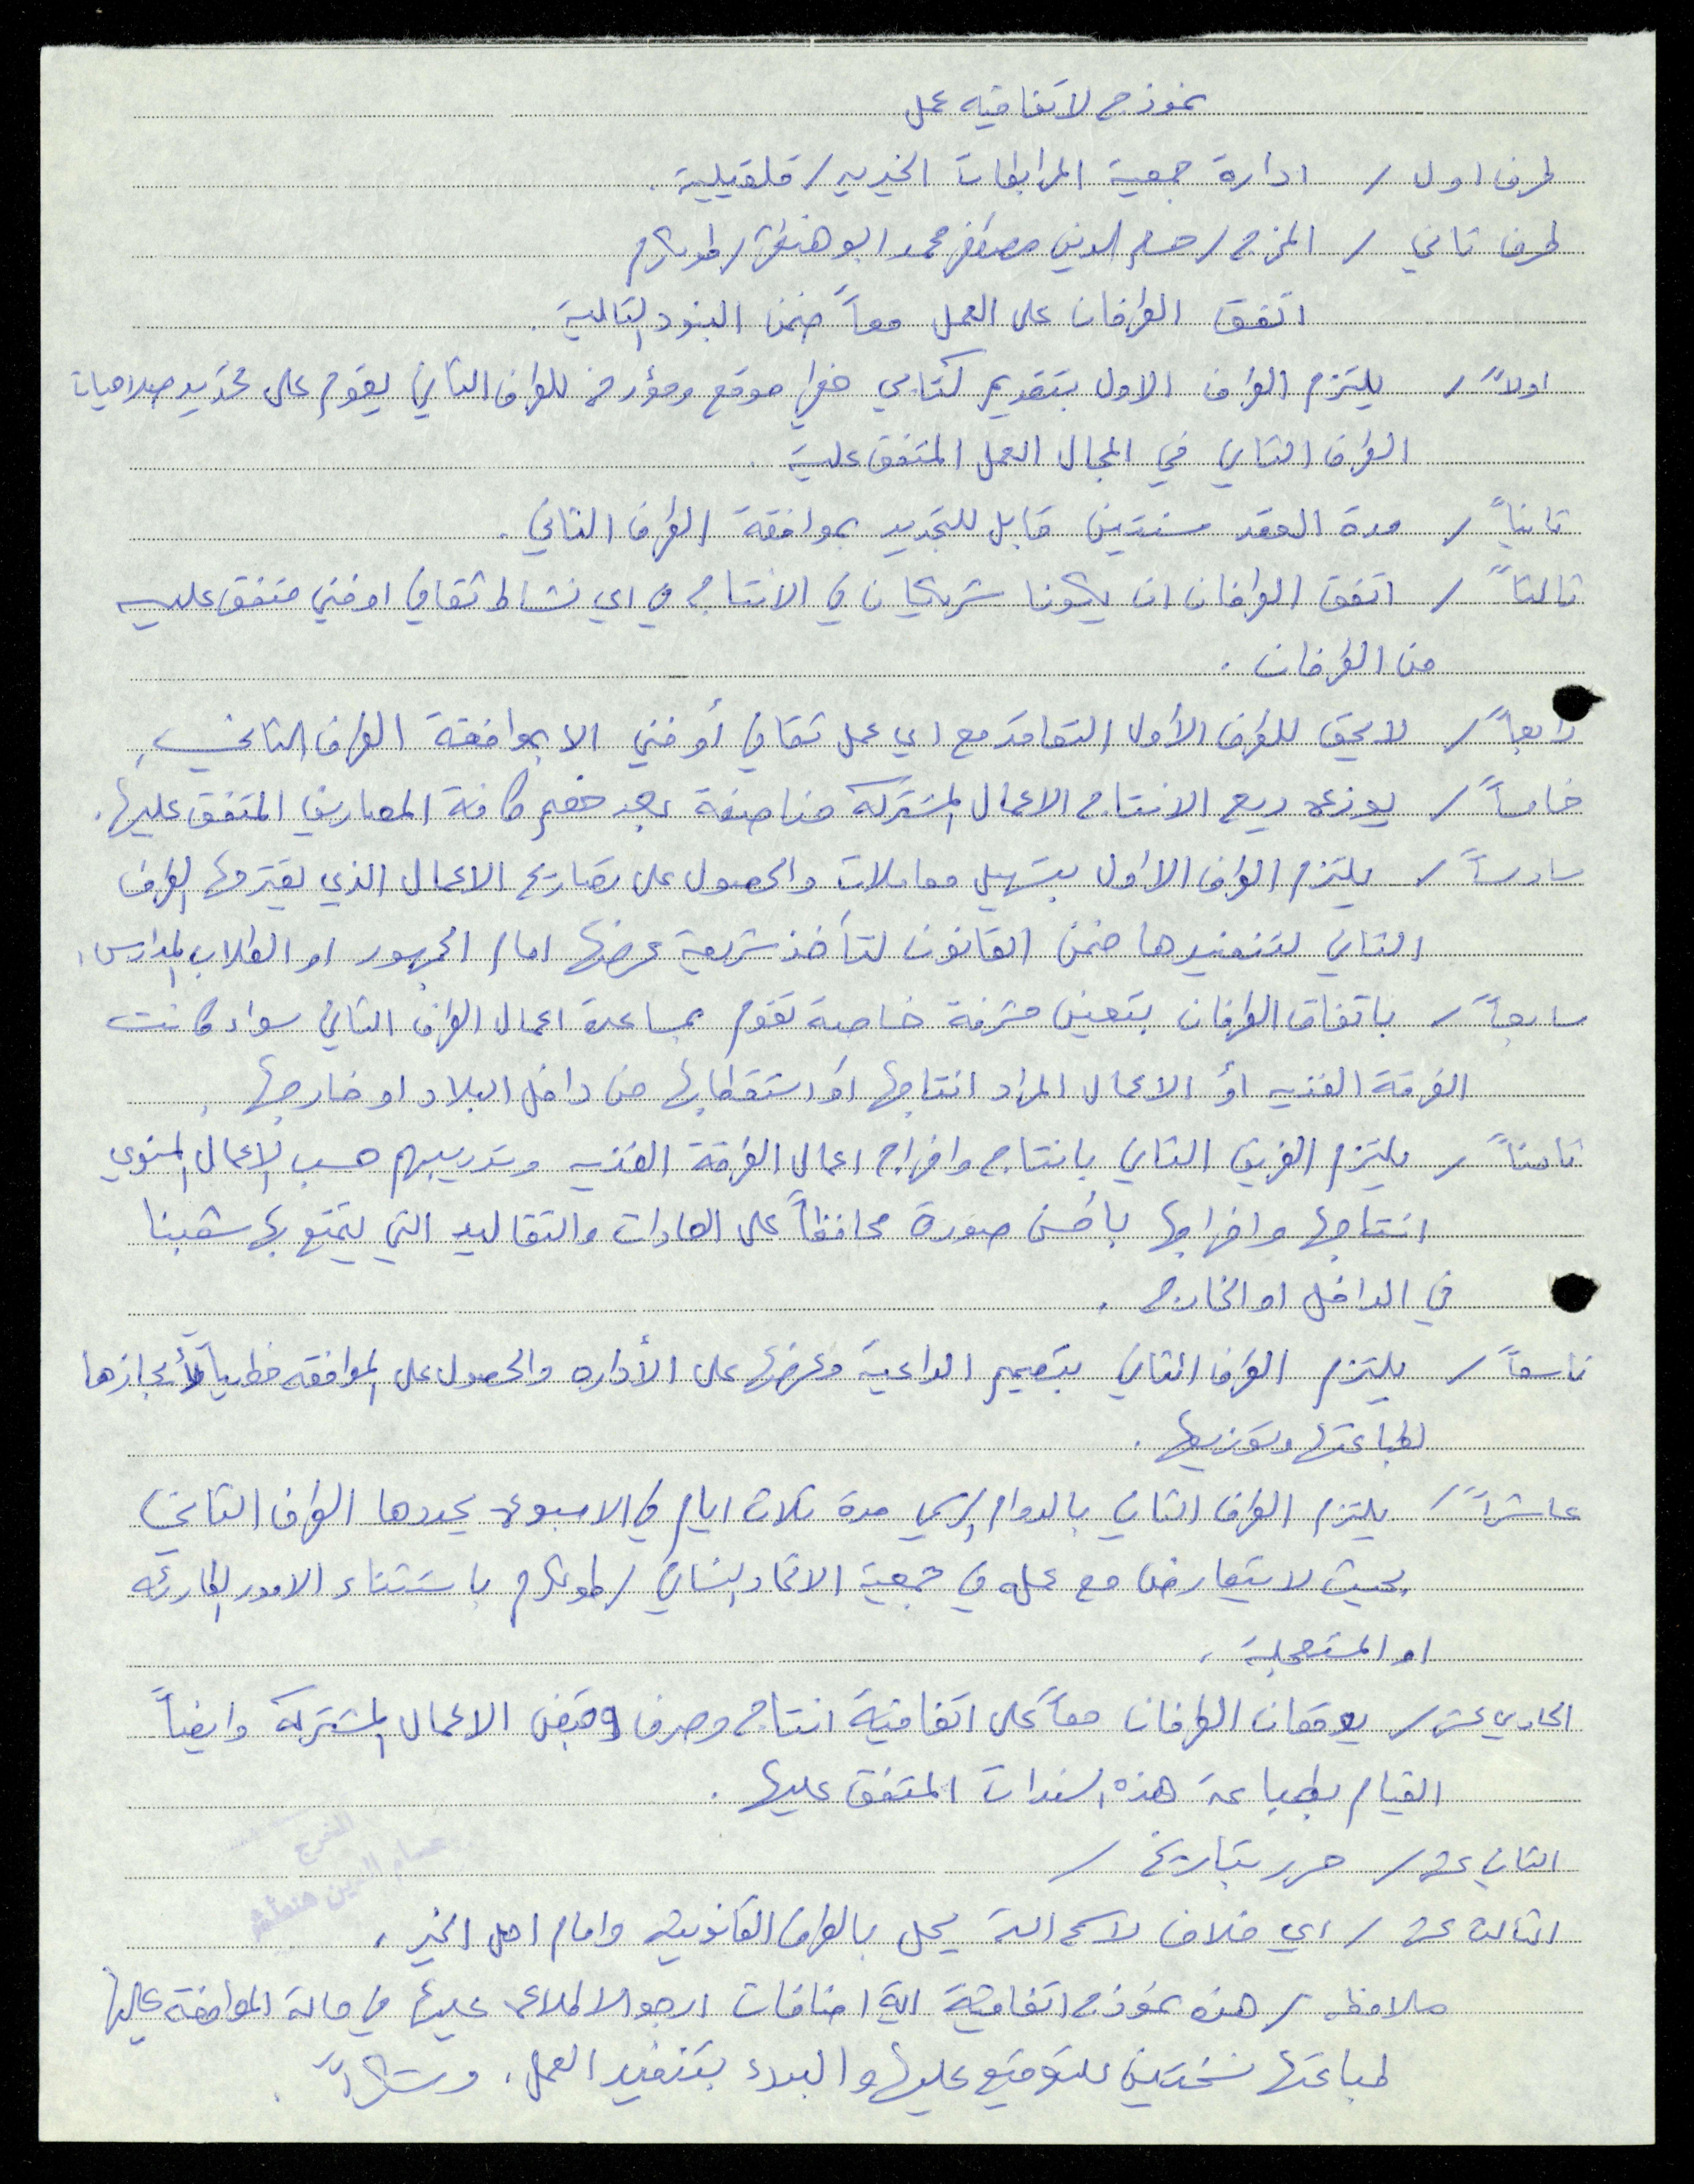 نموذج لاتفاقيه عمل
طرف اول / ادارة جمعية المرابطات الخيريه / قلقيلية .
طرف تاني / المخرج / حسام الدين مصطفى محمد ابو هنطش / طولكرم
اتفق الطرفان على العمل معاً ضمن البنود التالية .
اولاً / يلتزم الطرف الاول بتقديم كتابي خطي موقع ومؤرخ للطرف التاني يقوم على تحديد صلاحيات
الطرف التاني في المجال العمل المتفق علية .
تانياً / مدة العقد سنتين قابل للتجديد بموافقة الطرف التاني .
تالتاً / اتفق الطرفان ان يكونا شريكان في الانتاج في اي نشاط ثقافي او فني متفق عليه
من الطرفان .
رابعاً / لا يحق للطرف الأول التعاقد مع اي عمل ثقافي أو فني الا بموافقة الطرف التاني .
خامساً / يوزع ريع الانتاج الاعمال المشتركه مناصفة بعد خصم كافة المصاريف المتفق عليها .
سادساً / يلتزم الطرف الاول بتسهيل معاملات والحصول على تصاريح الاعمال الذي يقترحها الطرف
التاني لتنفيدها ضمن القانون لتأخذ شريعة عرضها امام الجمهور او الطلاب المدارس .
سابعاً / باتفاق الطرفان بتعين مشرفة خاصة تقوم بمساعدة اعمال الطرف التاني سواء كانت
الفرقة الفنيه أو الاعمال المراد انتاجها او استقطابها من داخل البلاد او خارجها .
تامناً / يلتزم الفريق التاني بانتاج واخراج اعمال الفرقة الفنيه وتدريبهم حسب الاعمال المنوي
انتاجها واخراجها بأحسن صورة محافظاً على العادات والتقاليد التي يتمتع بها شعبنا
في الداخل او الخارج .
تاسعاً / يلتزم الطرف التاني بتصميم الداعية وعرضها على الأداره والحصول على الموافقه خطياً لأنجازها
لطباعتها وتوزيعها .
عاشراً / يلتزم الطرف التاني بالدوام الرسمي مدة تلات ايام في الاسبوع يحددها الطرف التاني
بحيث لا يتعارض مع عمله في جمعية الاتحاد النسائي / طولكرم باستتناء الامور الطارئه
او المستعجلة .
الحادي عشر / يوقعان الطرفان معاً على اتفاقية انتاج وصرف وقبض الاعمال المشتركه وايضاً
القيام بطباعة هذه السندات المتفق عليها .
التاني عشر / حرر بتاريخ /
المخرج
حسام الدين هنطش
التالت عشر / اي خلاف لا سمح الله يحل بالطرق القانونيه وامام اهل الخير .
ملاحظه / هذه نموذج اتفاقية اية اضافات ارجو الاطلاع عليها في حالة الموافقة عليها
طباعتها نسختين للتوقيع عليها والبدء بتنفيد العمل . وشكراً .